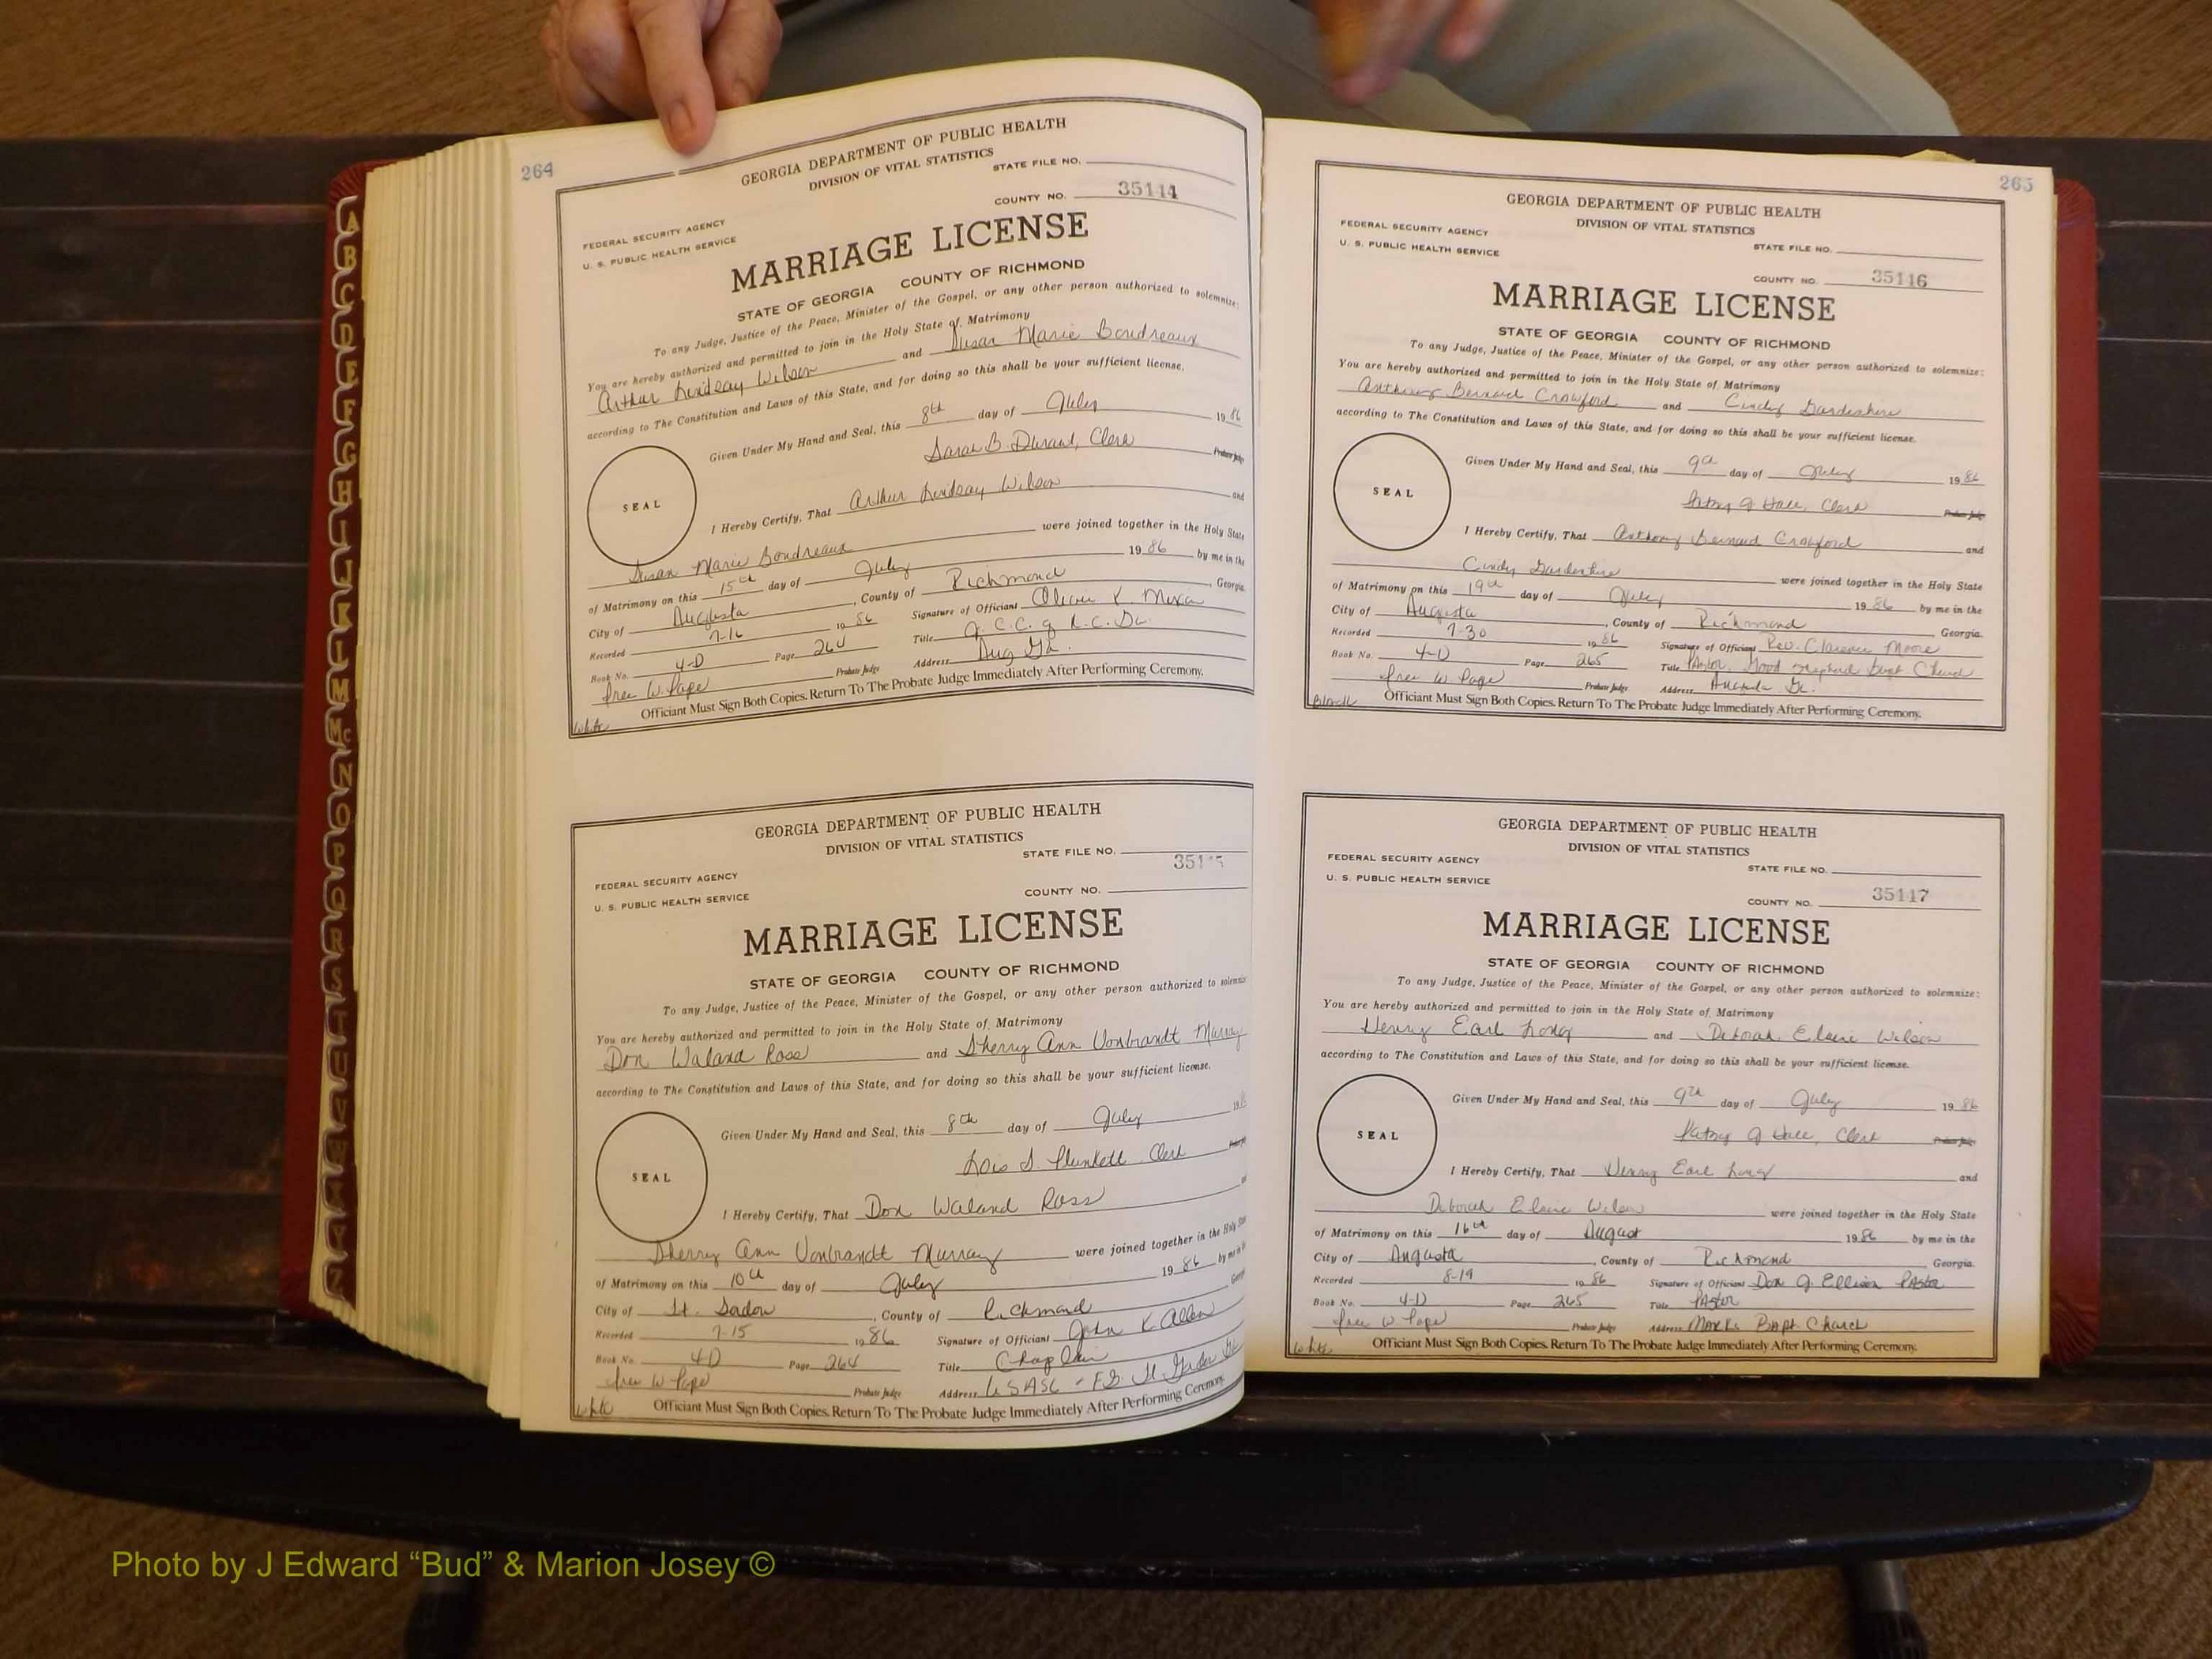 264
GEORGIA DEPARTMENT OF PUBLIC HEALTH
DIVISION OF VITAL STATISTICS
STATE FILE NO.
COUNTY NO. 35114
FEDERAL SECURITY AGENCY
U. S. PUBLIC HEALTH SERVICE
MARRIAGE LICENSE
STATE OF GEORGIA COUNTY OF RICHMOND
To any Judge, Justice of the Peace, Minister of the Gospel, or any other person authorized to solemnize:
You are hereby authorized and permitted to join in the Holy State of Matrimony
Arthur Lindsay Wilson and Susan Marie Boudreaux
according to The Constitution and Laws of this State, and for doing so this shall be your sufficient license.
Given Under My Hand and Seal, this 8th day of July 1986
Sarah B. Durant, Clerk Probate Judge
SEAL
I Hereby Certify, That Arthur Lindsay Wilson and
Susan Marie Boudreaux were joined together in the Holy State
of Matrimony on this 15th day of July 1986 by me in the
City of Augusta, County of Richmond, Georgia.
Recorded 7-16 1986 Signature of Officiant Oliver K. Mixon
Book No. 4-D Page 264 Title J. C. C. of R. C. Ga.
Probate Judge Address Aug Ga.
Officiant Must Sign Both Copies. Return To The Probate Judge Immediately After Performing Ceremony.
White
GEORGIA DEPARTMENT OF PUBLIC HEALTH
DIVISION OF VITAL STATISTICS
STATE FILE NO.
35115
COUNTY NO.
FEDERAL SECURITY AGENCY
U. S. PUBLIC HEALTH SERVICE
MARRIAGE LICENSE
STATE OF GEORGIA COUNTY OF RICHMOND
To any Judge, Justice of the Peace, Minister of the Gospel, or any other person authorized to solemnize
You are hereby authorized and permitted to join in the Holy State of Matrimony
Don Waland Ross and Sherry Ann Vonbrandt Murray
according to The Constitution and Laws of this State, and for doing so this shall be your sufficient license.
Given Under My Hand and Seal, this 8th day of July 19
Lois S. Plunkett, Clerk
SEAL
I Hereby Certify, That Don Waland Ross
Sherry Ann Vonbrandt Murray were joined together in the Holy
of Matrimony on this 10th day of July 1986 by me in
City of Ft. Gordon, County of Richmond
Recorded 7-15 1986 Signature of Officiant John K Allen
Book No. 4D Page 264 Title Chaplain
Probate Judge Address USASC - FG Ft. Gordon Ga
Officiant Must Sign Both Copies. Return To The Probate Judge Immediately After Performing Ceremony.
White
265
GEORGIA DEPARTMENT OF PUBLIC HEALTH
DIVISION OF VITAL STATISTICS
FEDERAL SECURITY AGENCY
U. S. PUBLIC HEALTH SERVICE
STATE FILE NO.
COUNTY NO. 35116
MARRIAGE LICENSE
STATE OF GEORGIA COUNTY OF RICHMOND
To any Judge, Justice of the Peace, Minister of the Gospel, or any other person authorized to solemnize:
You are hereby authorized and permitted to join in the Holy State of Matrimony
Anthony Bernard Crawford and Cindy Gardenhire
according to The Constitution and Laws of this State, and for doing so this shall be your sufficient license.
Given Under My Hand and Seal, this 9th day of July 1986
Patsy J Hall, Clerk Probate Judge
SEAL
I Hereby Certify, That Anthony Bernard Crawford and
Cindy Gardenhire were joined together in the Holy State
of Matrimony on this 19th day of July 1986 by me in the
City of Augusta, County of Richmond, Georgia.
Recorded 7-30 1986 Signature of Officiant Rev. Clarence Moore
Book No. 4-D Page 265 Title Pastor, Good Shepherd Bapt Church
Probate Judge Address Augusta Ga.
Officiant Must Sign Both Copies. Return To The Probate Judge Immediately After Performing Ceremony.
Black
GEORGIA DEPARTMENT OF PUBLIC HEALTH
DIVISION OF VITAL STATISTICS
FEDERAL SECURITY AGENCY
U. S. PUBLIC HEALTH SERVICE
STATE FILE NO.
COUNTY NO. 35117
MARRIAGE LICENSE
STATE OF GEORGIA COUNTY OF RICHMOND
To any Judge, Justice of the Peace, Minister of the Gospel, or any other person authorized to solemnize:
You are hereby authorized and permitted to join in the Holy State of Matrimony
Henry Earl Long and Deborah Elaine Wilson
according to The Constitution and Laws of this State, and for doing so this shall be your sufficient license.
Given Under My Hand and Seal, this 9th day of July 1986
Patsy J Hall, Clerk Probate Judge
SEAL
I Hereby Certify, That Henry Earl Long and
Deborah Elaine Wilson were joined together in the Holy State
of Matrimony on this 16th day of August 1986 by me in the
City of Augusta, County of Richmond, Georgia.
Recorded 8-19 1986 Signature of Officiant Don J. Ellison Pastor
Book No. 4-D Page 265 Title Pastor
Probate Judge Address Marks Bapt Church
Officiant Must Sign Both Copies. Return To The Probate Judge Immediately After Performing Ceremony.
White
A B C D E F G H I J K L M Mc N O P Q R S T U V W X Y Z
Photo by J Edward “Bud” & Marion Josey ©